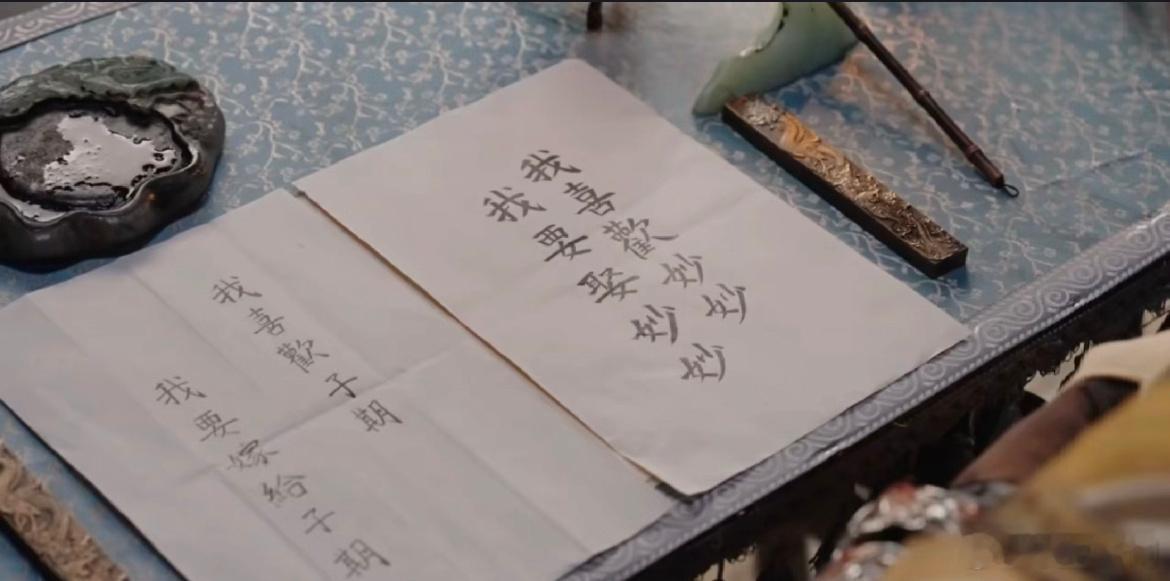 我喜歡妙妙
我要娶妙妙
我喜歡子期
我要嫁給子期